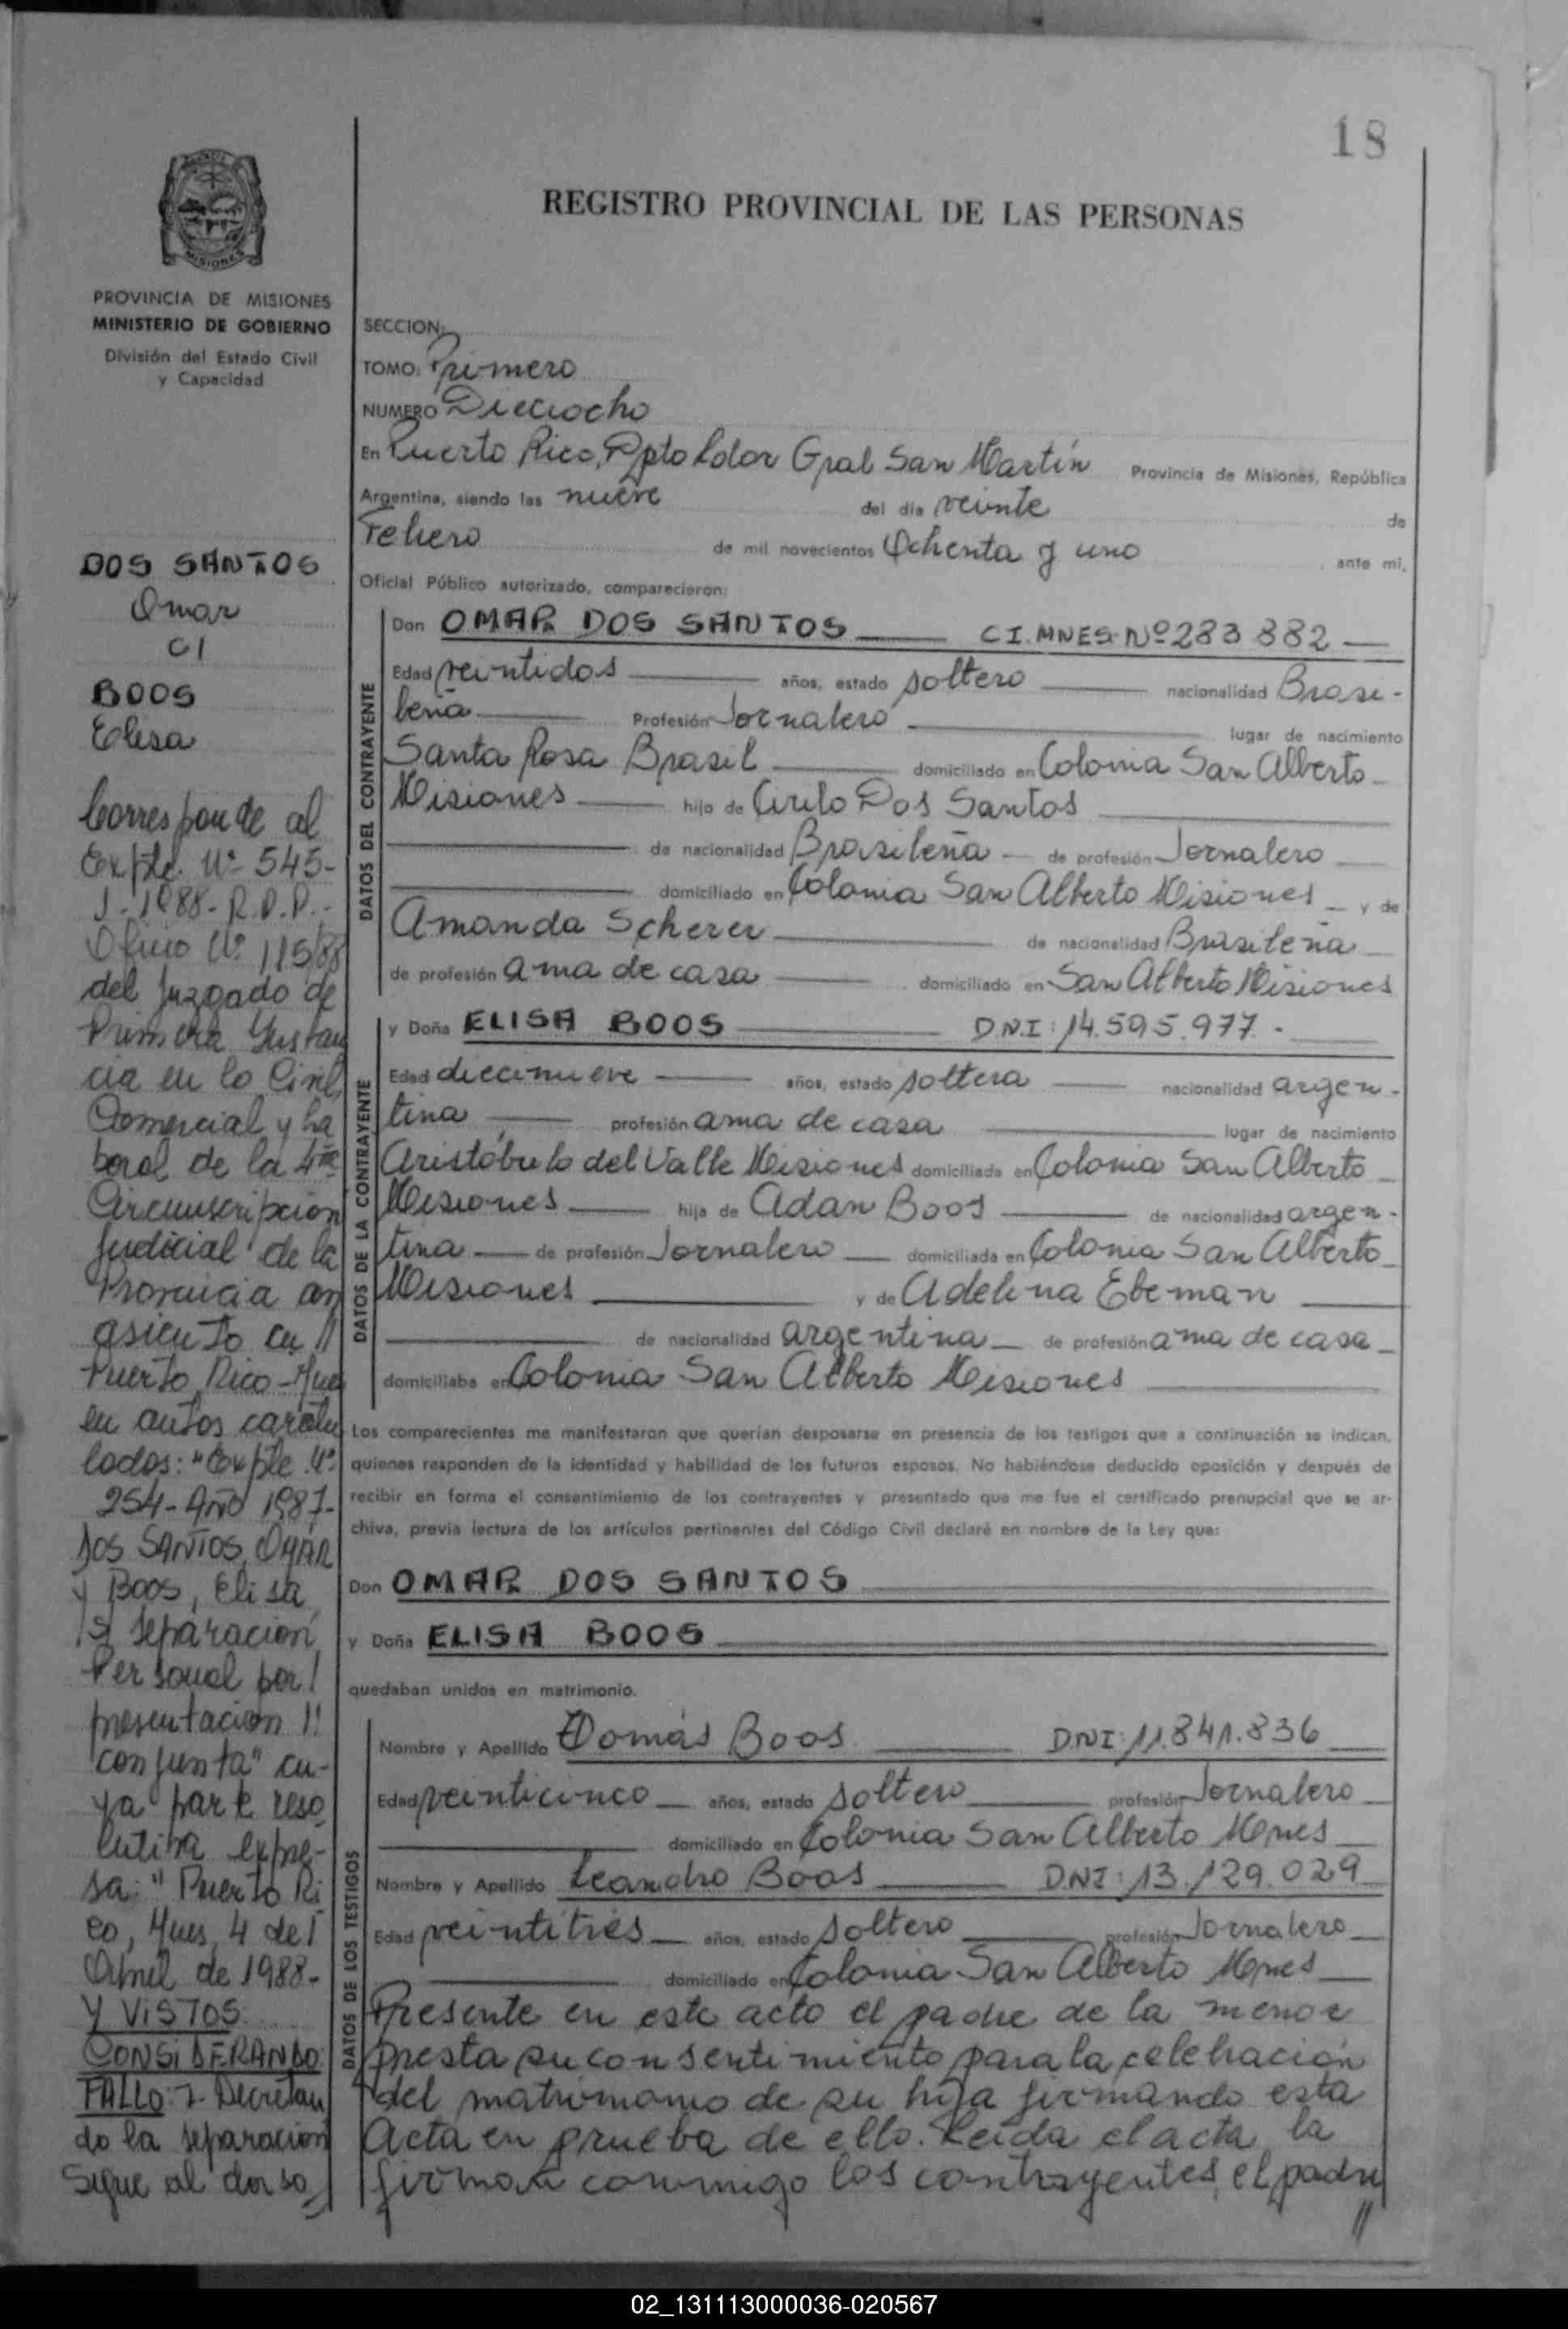 18
REGISTRO PROVINCIAL DE LAS PERSONAS
MISIONES
PROVINCIA DE MISIONES
MINISTERIO DE GOBIERNO
División del Estado Civil
y Capacidad
DOS SANTOS
Omar
C/
BOOS
Elisa
Corresponde al
Expte. Nº 545-
J-1988-R.P.P.-
Oficio Nº 115/88
del Juzgado de
Primera Instan
cia en lo Civil,
Comercial y La
boral de la 4ta
Circunscripción
Judicial de la
Provincia con
asiento en //
Puerto Rico-Mnes
en autos caratu
lados: "Expte. Nº
254-Año 1987-
DOS SANTOS, OMAR
y BOOS, Elisa
s/ separación
Personal por/
presentación //
conjunta" cu-
ya parte reso
lutiva expre-
sa: "Puerto Ri
co, Mnes, 4 de/
Abril de 1988.-
Y VISTOS:
CONSIDERANDO:
FALLO: I- Decretan
do la separación
Sigue al dorso//
SECCION:
TOMO: Primero
NUMERO Dieciocho
En Puerto Rico, Dpto Ldor Gral San Martín Provincia de Misiones, República
Argentina, siendo las nueve del día veinte de
Febrero de mil novecientos Ochenta y uno ante mí,
Oficial Público autorizado, comparecieron:
DATOS DEL CONTRAYENTE
Don OMAR DOS SANTOS CI. MNES. Nº 283 882
Edad veintidos años, estado soltero nacionalidad Brasi-
leña Profesión Jornalero lugar de nacimiento
Santa Rosa Brasil domiciliado en Colonia San Alberto
Misiones hijo de Cirilo Dos Santos
de nacionalidad Brasileña de profesión Jornalero
domiciliado en Colonia San Alberto Misiones y de
Amanda Scherer de nacionalidad Brasileña
de profesión ama de casa domiciliado en San Alberto Misiones
DATOS DE LA CONTRAYENTE
y Doña ELISA BOOS D.N.I: 14.595.977.-
Edad diecinueve años, estado soltera nacionalidad argen-
tina profesión ama de casa lugar de nacimiento
Aristóbulo del Valle Misiones domiciliada en Colonia San Alberto
Misiones hija de Adan Boos de nacionalidad argen-
tina de profesión Jornalero domiciliada en Colonia San Alberto
Misiones y de Adelina Ebeman
de nacionalidad argentina de profesión ama de casa
domiciliaba en Colonia San Alberto Misiones
Los comparecientes me manifestaron que querían desposarse en presencia de los testigos que a continuación se indican,
quienes responden de la identidad y habilidad de los futuros esposos. No habiéndose deducido oposición y después de
recibir en forma el consentimiento de los contrayentes y presentado que me fue el certificado prenupcial que se ar-
chiva, previa lectura de los artículos pertinentes del Código Civil declaré en nombre de la Ley que:
Don OMAR DOS SANTOS
y Doña ELISA BOOS
quedaban unidos en matrimonio.
DATOS DE LOS TESTIGOS
Nombre y Apellido Tomás Boos DNI: 11.841.836
Edad veinticinco años, estado soltero profesión Jornalero
domiciliado en Colonia San Alberto Mnes
Nombre y Apellido Leandro Boos DNI: 13.129.029
Edad veintitrés años, estado soltero profesión Jornalero
domiciliado en Colonia San Alberto Mnes
Presente en este acto el padre de la menor
presta su consentimiento para la celebración
del matrimonio de su hija firmando esta
Acta en prueba de ello. Leída el acta, la
firman conmigo los contrayentes, el padre
//
02_131113000036-020567